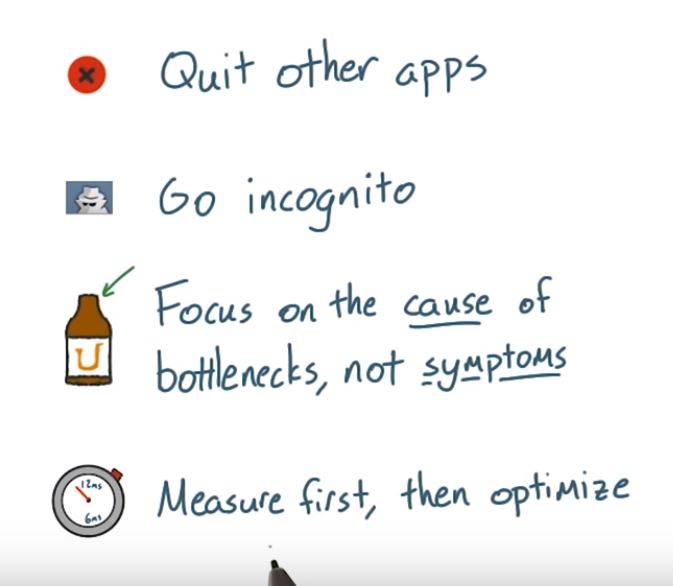 Quit other apps
Go incognito
Focus on the cause of
U
bottlenecks, not symptoms
12ms
6ms
Measure first, then optimize